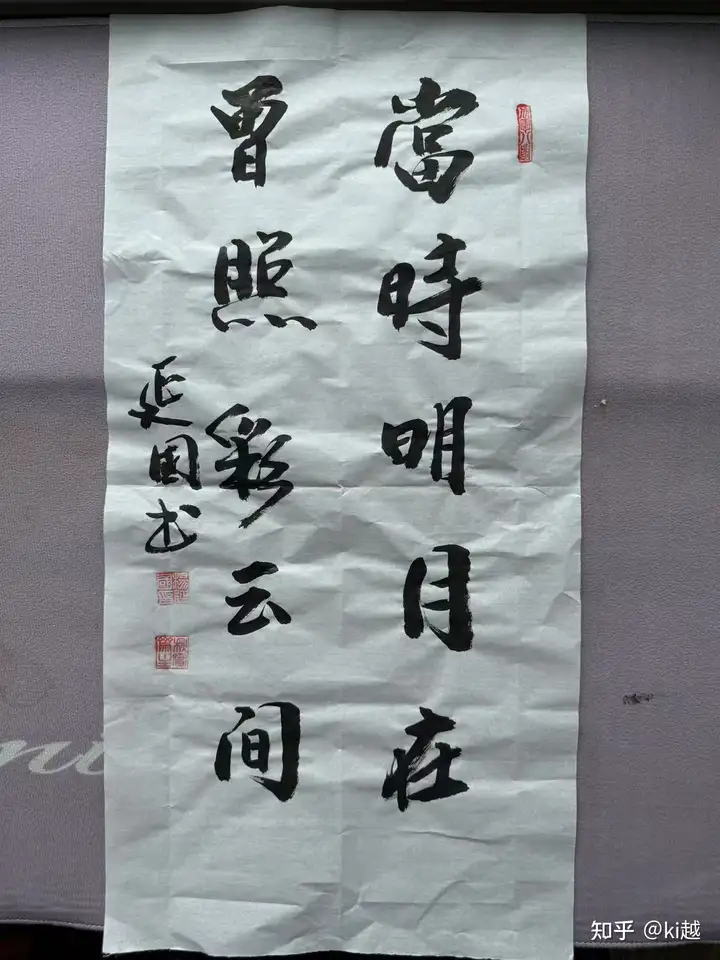 當時明月在
曾照彩云间
延国书
知乎 @ki越